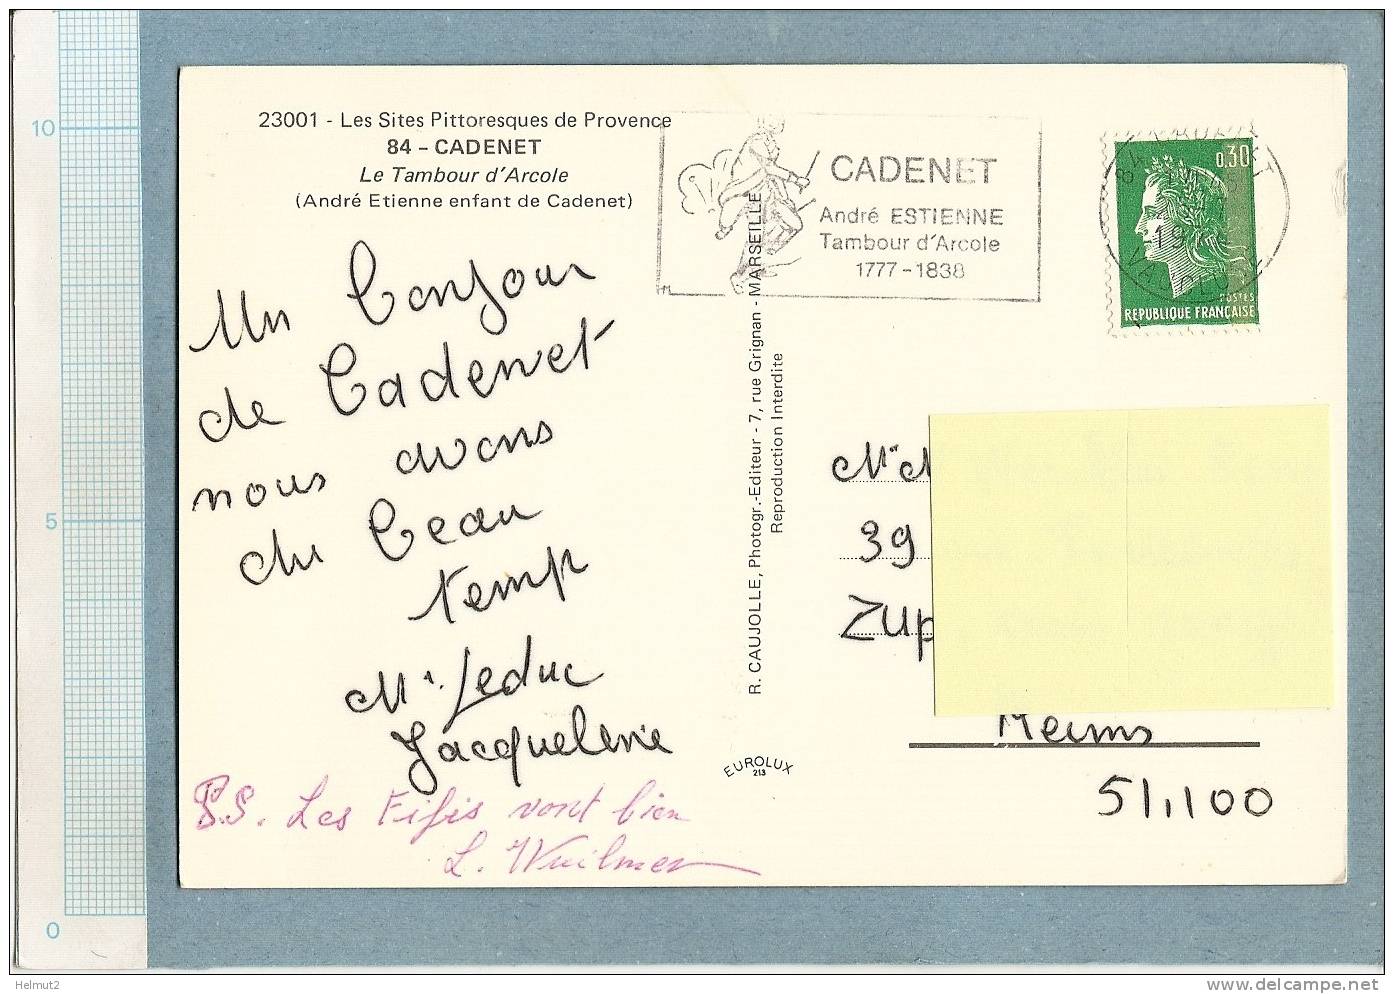 10
5
0
23001 - Les Sites Pittoresques de Provence
84 - CADENET
Le Tambour d'Arcole
(André Etienne enfant de Cadenet)
Un bonjour
de Cadenet
nous avons
du beau
temp
Mr Leduc
Jacqueline
P.S. Les Fifis vont bien
L. Wuilmer
R. CAUJOLLE, Photogr.-Editeur - 7, rue Grignan - MARSEILLE
Reproduction Interdite
EUROLUX
213
CADENET
André ESTIENNE
Tambour d'Arcole
1777-1838
84 CADENET
VAUCLUSE
0,30
POSTES
REPUBLIQUE FRANÇAISE
Mr M
39
ZUP
Reims
51.100
Helmut2
www.delcampe.net